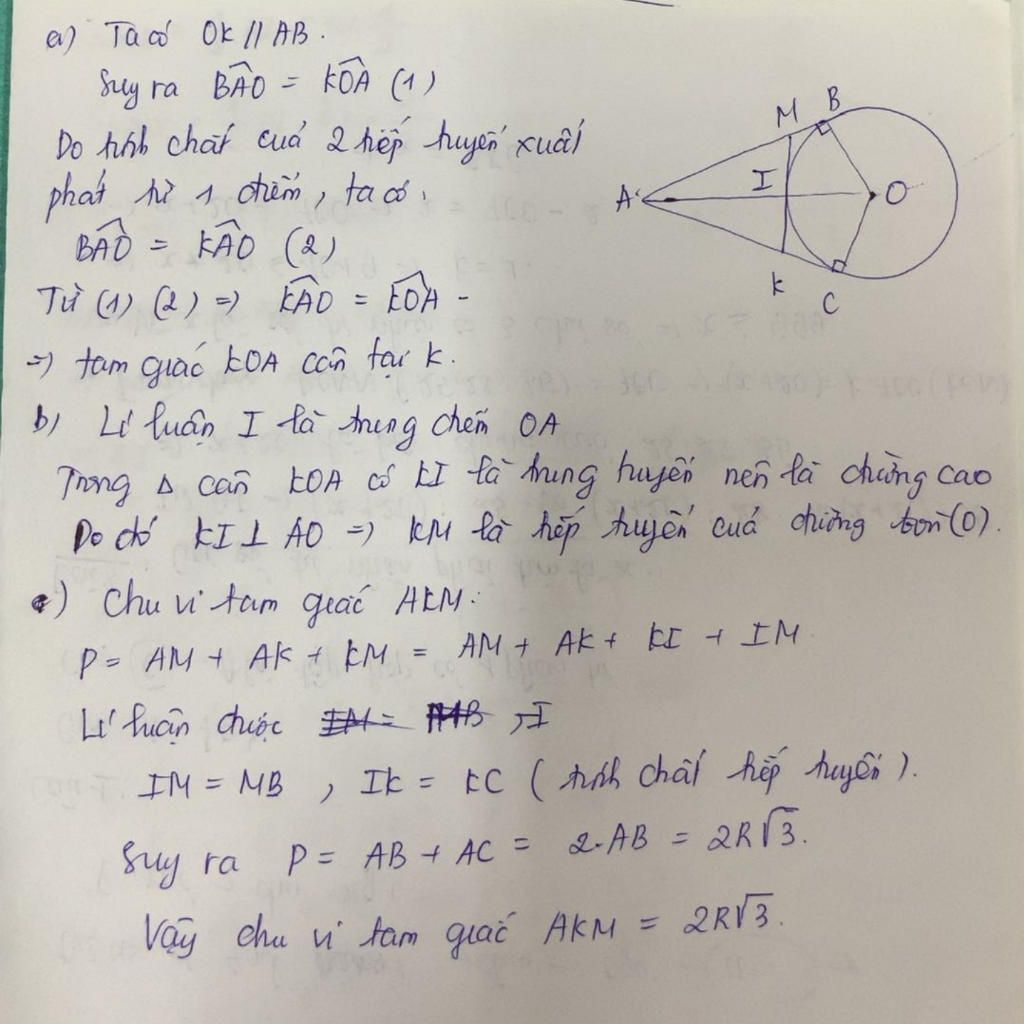 a) Ta có OK // AB.
Suy ra BÂO = KÔA (1)
Do tính chất của 2 tiếp tuyến xuất
phát từ 1 điểm, ta có:
BÂO = KÂO (2)
Từ (1) (2) => KÂO = KÔA -
=> tam giác KOA cân tại K.
b) Lí luận I là trung điểm OA
Trong Δ cân KOA có KI là trung tuyến nên là đường cao
Do đó KI ⊥ AO => KM là tiếp tuyến của đường tròn (O).
c) Chu vi tam giác AKM:
P = AM + AK + KM = AM + AK + KI + IM
Lí luận được , I
IM = MB , IK = KC ( tính chất tiếp tuyến ).
Suy ra P = AB + AC = 2.AB = 2R√3.
Vậy chu vi tam giác AKM = 2R√3.
M B
I
A
O
K
C